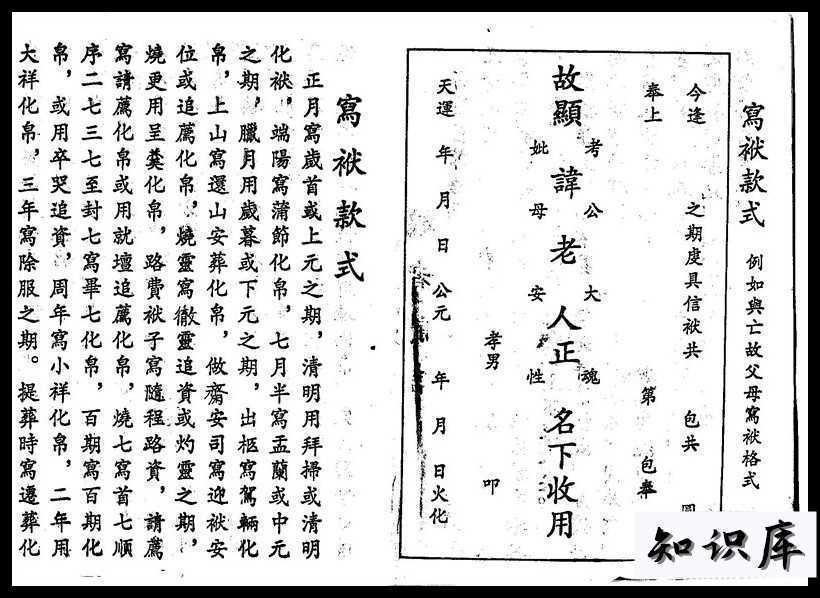 寫袱款式 例如與亡故父母寫袱格式
今逢 之期虔具信袱共 包共
奉上 第 包奉
考 公 大 魂
故顯 諱 老 人正 名下收用
妣 母 安 性
孝男 叩
天運 年 月 日 公元 年 月 日火化
寫袱款式
正月寫歲首或上元之期,清明用拜掃或清明
化袱,端陽寫蒲節化帛,七月半寫盂蘭或中元
之期,臘月用歲暮或下元之期,出柩寫駕輛化
帛,上山寫還山安葬化帛,做齋安司寫迎袱安
位或追薦化帛,燒靈寫徹靈追資或灼靈之期,
燒更用呈羹化帛,路費袱子寫隨程路資,請薦
寫請薦化帛或用就壇追薦化帛,燒七寫首七順
序二七三七至封七寫畢七化帛,百期寫百期化
帛,或用卒哭追資,周年寫小祥化帛,二年用
大祥化帛,三年寫除服之期。提葬時寫遷葬化
知识库